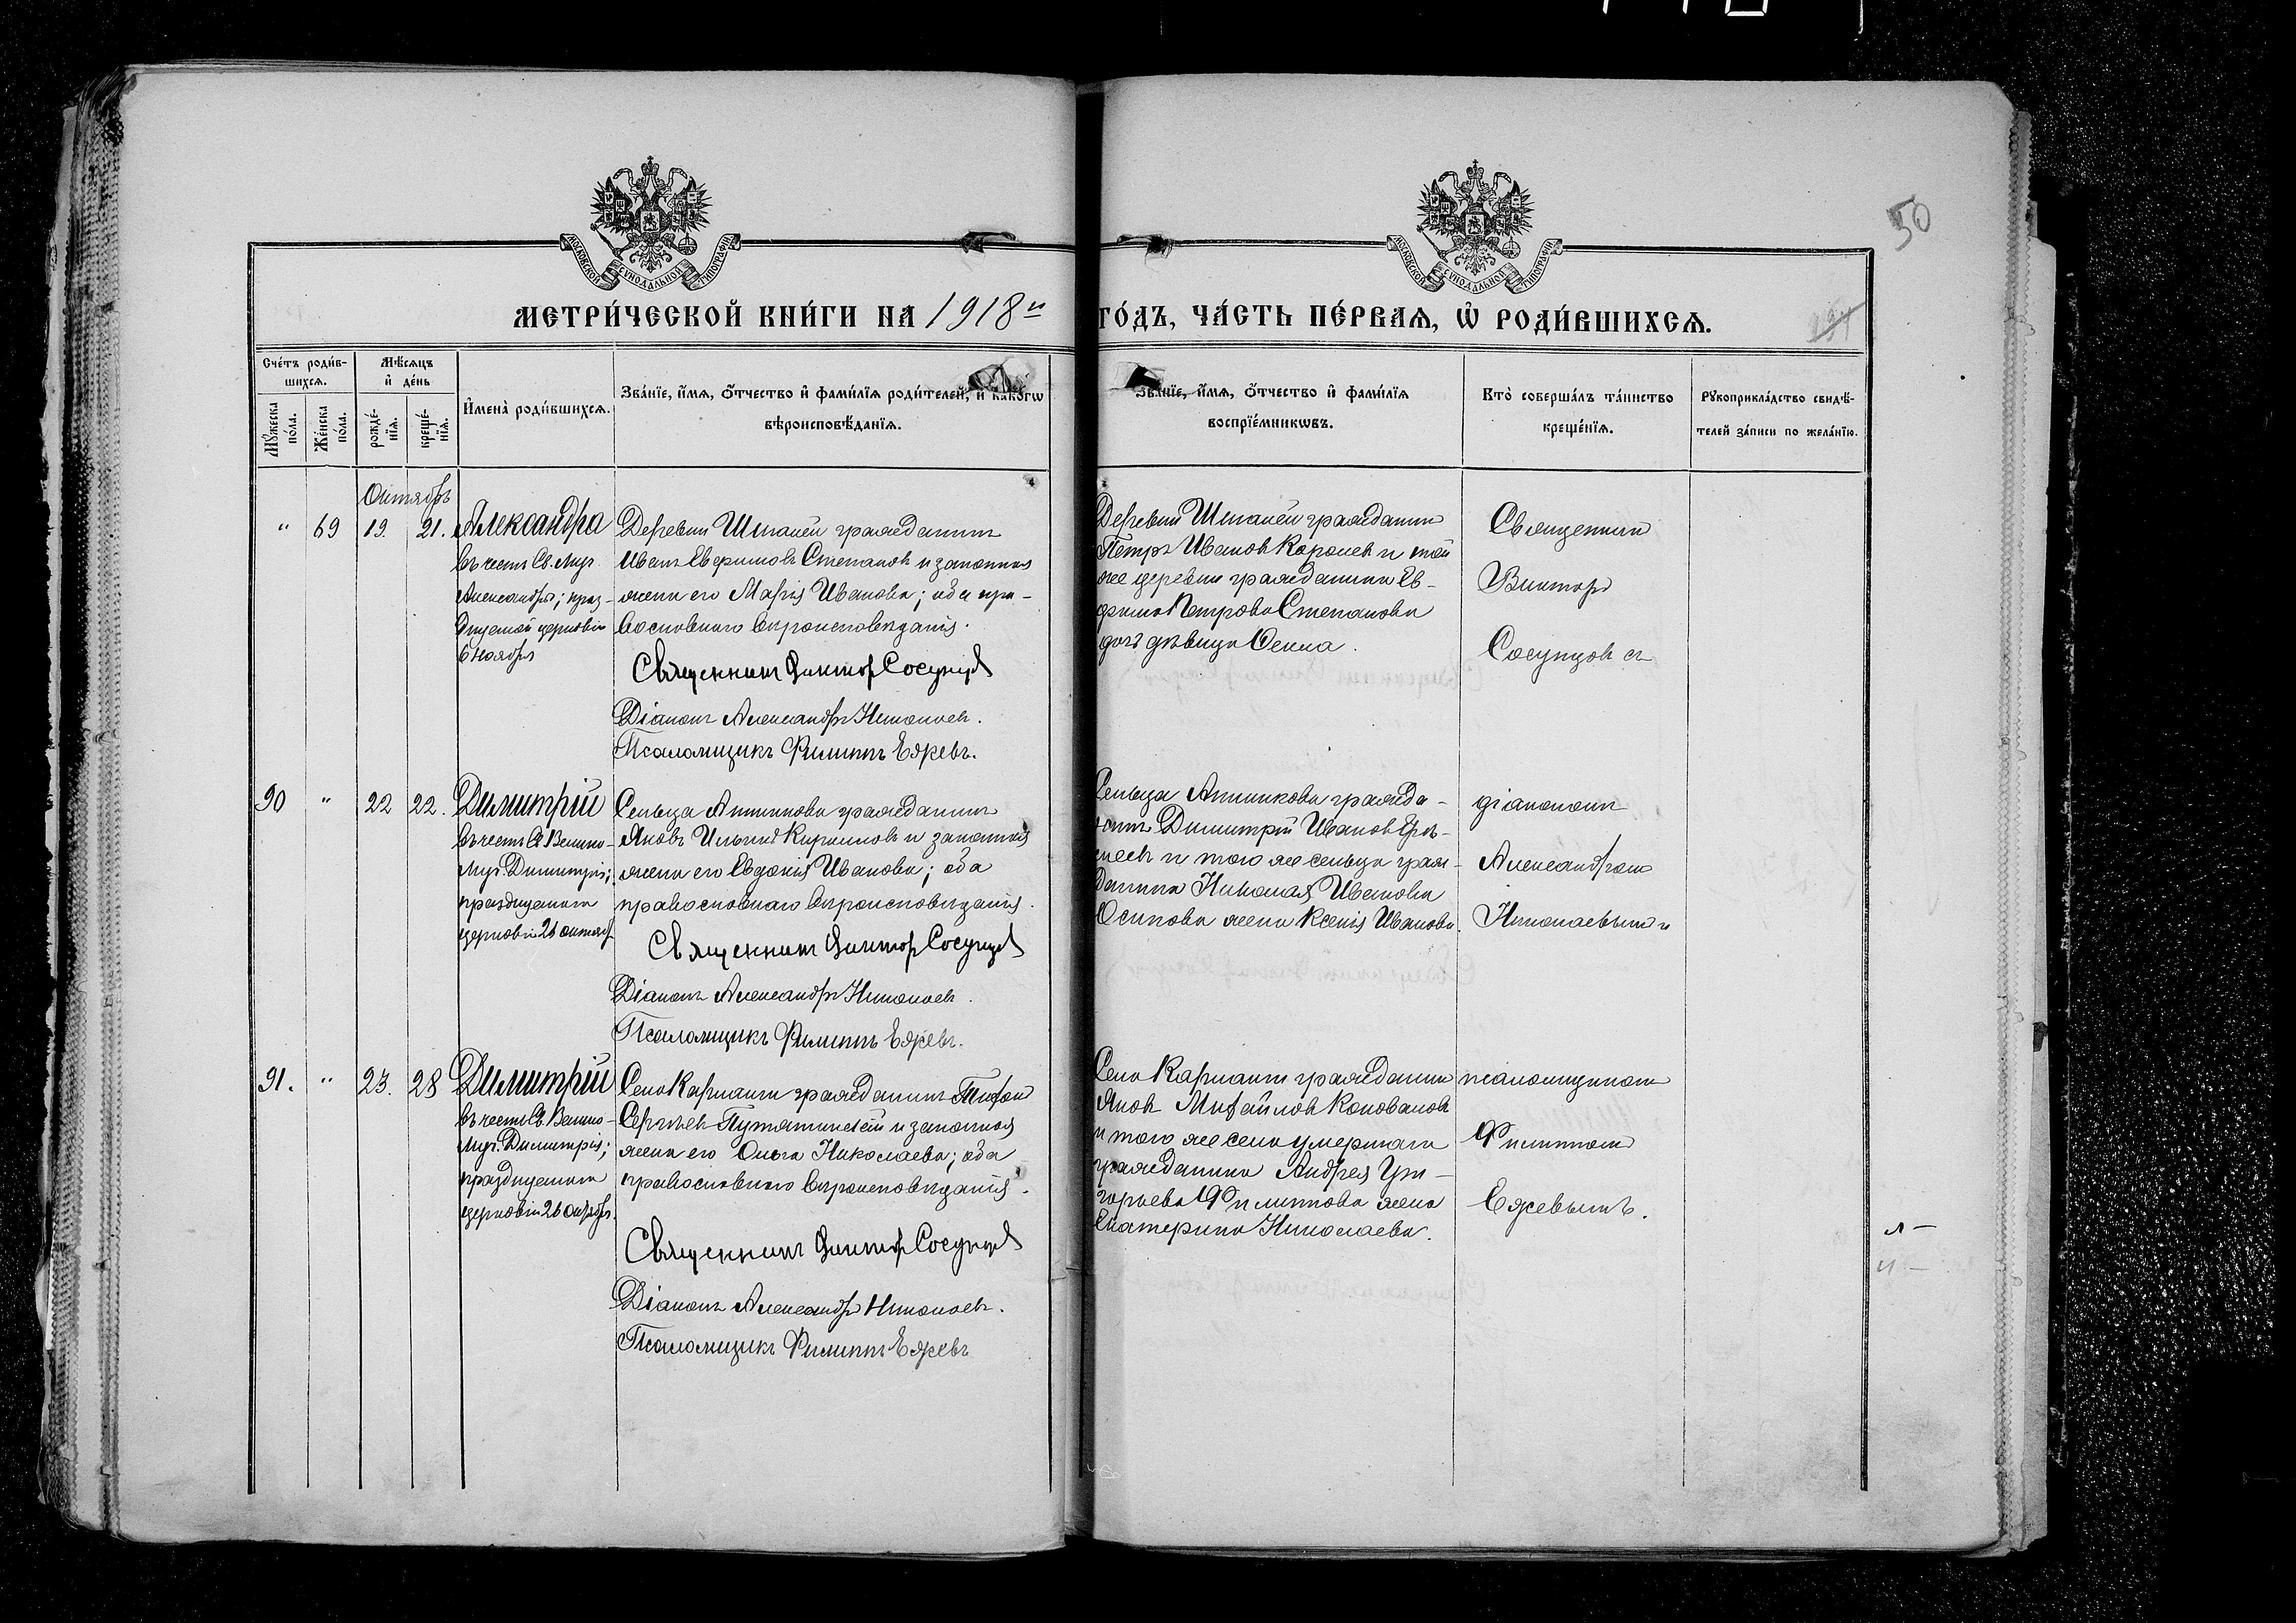 50
МОСКОВСКОЙ СУНОДАЛЬНОЙ ТИПОГРАФІИ
МОСКОВСКОЙ СУНОДАЛЬНОЙ ТИПОГРАФІИ
МЕТРИ́ЧЕСКОЙ КНИ́ГИ НА 1918 й
ГО́ДЪ, ЧА́СТЬ ПЕ́РВАѦ, Ѡ҆ РОДИ́ВШИХСѦ.
Сче́тъ роди́в-
шихсѧ.
Мѣ́сѧцъ
и҆ де́нь
Мꙋ́жеска
по́ла.
Же́нска
по́ла.
рожде́-
нїѧ.
креще́-
нїѧ.
И҆мена̀ роди́вшихсѧ.
Зва́нїе, и҆́мѧ, о҆́тчество и҆ фами́лїѧ роди́телей, и҆ како́гѡ
вѣроисповѣ́данїѧ.
Зва́нїе, и҆́мѧ, о҆́тчество и҆ фами́лїѧ
воспрїе́мникѡвъ.
Кто̀ соверша́лъ та́инство
креще́нїѧ.
Рꙋкоприкла́дство свидѣ́-
телей за́писи по жела́нїю.
Октябрь
" 69 19. 21. Александра
въ честь Св. Муч.
Александры; праз-
днуемой церковію
6 Ноября
Деревни Шипаней гражданинъ
Иванъ Евфимовъ Степановъ и законная
жена его Марія Иванова; оба пра-
вославнаго вѣроисповѣданія.
Священникъ Виктор Сосунцов
Діаконъ Александръ Николаев.
Псаломщикъ Филиппъ Ежевъ.
Деревни Шипаней гражданин
Петръ Иванов Королев и той
же деревни гражданина Ев-
фима Петрова Степанова
дочь дѣвица Фекла.
Священник
Виктор
Сосунцов
90 " 22 22. Димитрій
въ честь Св. Велико-
муч. Димитрія;
празднуемаго
церковію 26 октяб.
Сельца Аничкова гражданинъ
Яковъ Ильинъ Кириллов и законная
жена его Евдокія Иванова; оба
православнаго вѣроисповѣданія.
Священникъ Виктор Сосунцов
Діаконъ Александръ Николаев.
Псаломщикъ Филиппъ Ежевъ.
Сельца Аничкова гражда-
нинъ Димитрій Иванов
и того же сельца граж-
данина Николая Иванова
Осипова жена Ксенія Иванова.
діаконом
Александром
Николаевым
91. " 23. 28 Димитрій
въ честь Св. Велико-
муч. Димитрія;
празднуемаго
церковію 26 октябр.
Село Карманы гражданинъ Тихон
Сергѣев Путятинскій и законная
жена его Ольга Николаева; оба
православнаго вѣроисповѣданія.
Священникъ Виктор Сосунцов
Діаконъ Александръ Николаев.
Псаломщикъ Филиппъ Ежевъ
Село Карманы гражданин
Яков Михайлов Коновалов
и того же села умершаго
гражданина Андрея Гри-
горьева Филиппова жена
Екатерина Николаева.
псаломщиком
Филиппом
Ежевымъ.